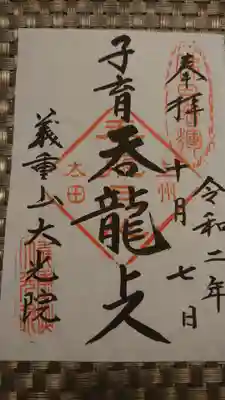 奉拝
令和二年
十月七日
子育
呑龍上人
太田
義重山大光院